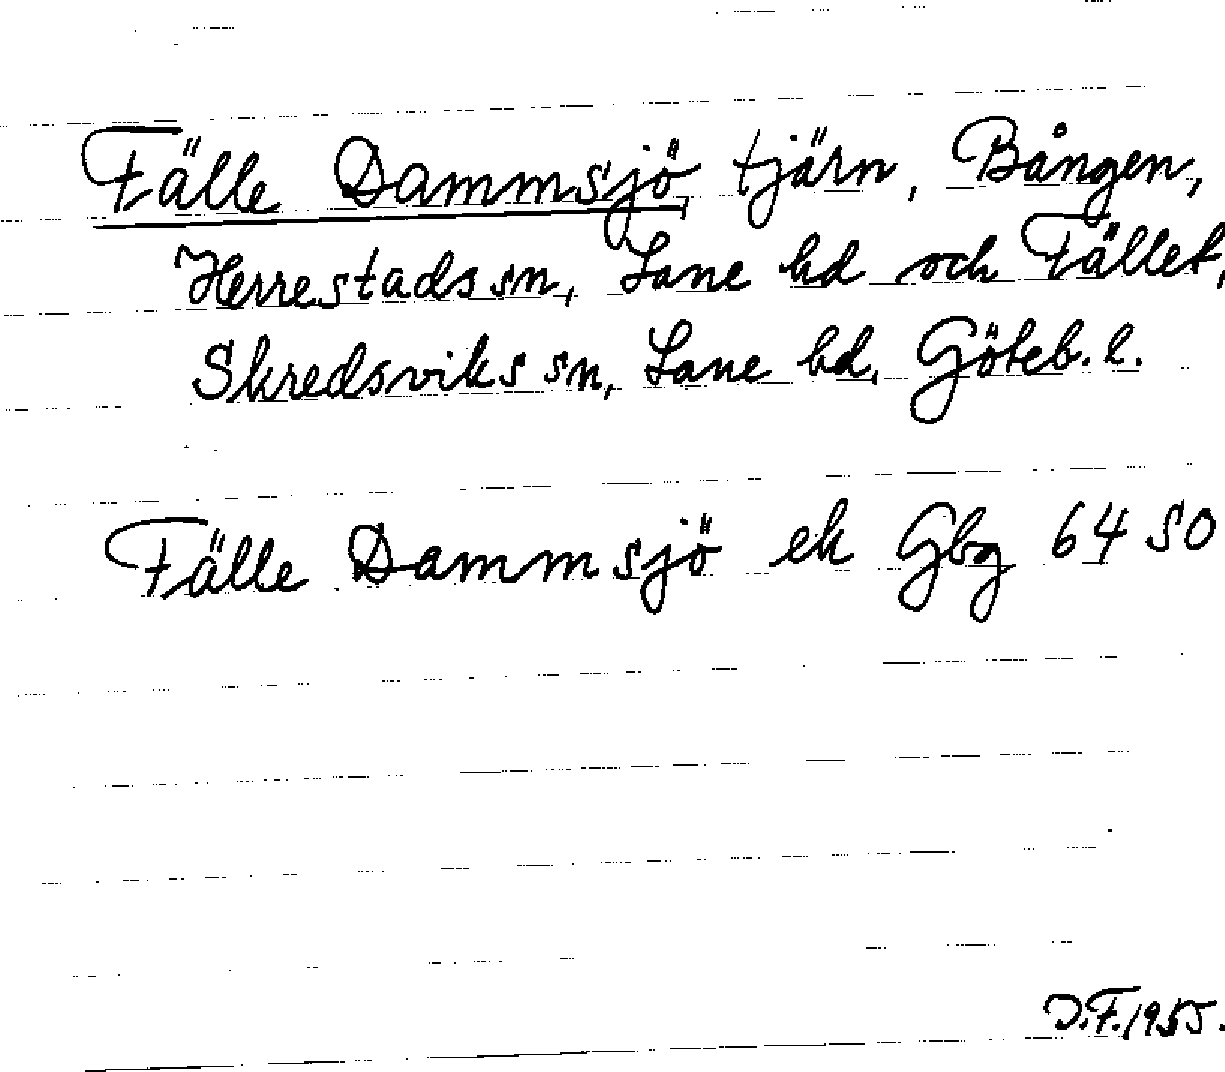 Fälle Dammsjö, tjärn, Bången,
Herrestads sn, Lane hd och Fället,
Skredsviks sn, Lane hd, Göteb. l.
Fälle Dammsjö ek Gbg 64 SO
D.F. 1955.